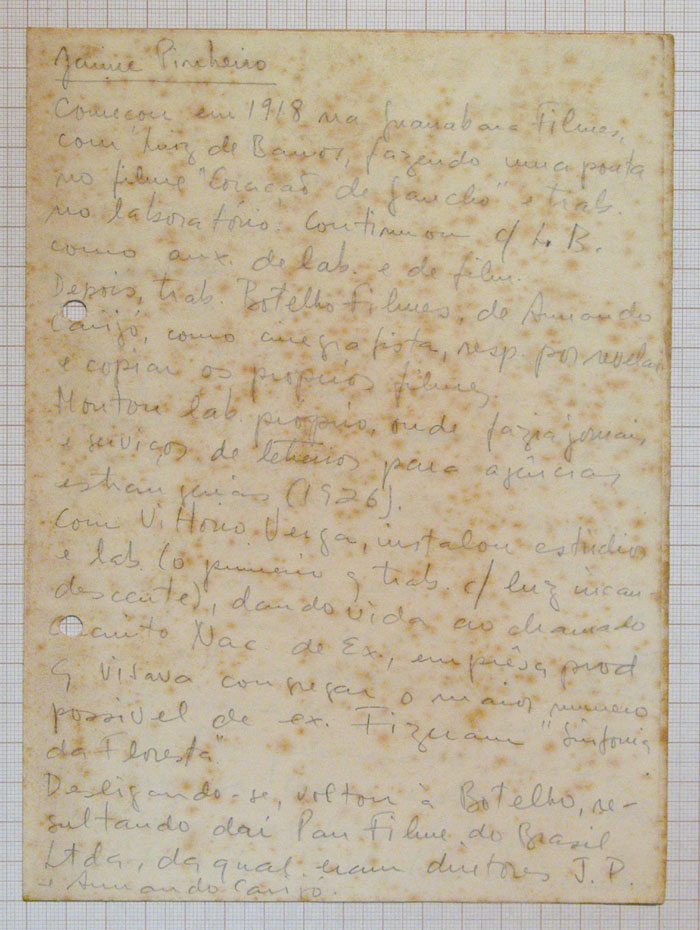 Jaime Pinheiro
Começou em 1918 na Guanabara Filmes,
com Luiz de Barros, fazendo uma ponta
no filme "Coração de Gaucho" e trab.
no laboratório. Continuou c/ L. B.
como aux. de lab. e de film.
Depois, trab. Botelho Filmes, de Armando
Carijó, como cinegrafista, resp. por revelar
e copiar os próprios filmes.
Montou lab. próprio, onde fazia jornais
e serviços de letreiros para agências
estrangeiras (1926).
Com Vittorio Verga, instalou estúdio
e lab. (o primeiro q trab. c/ luz incan-
descente), dando vida ao chamado
Circuito Nac. de Ex., emprêsa prod
q visava congregar o maior numero
possivel de ex. Fizeram "Sinfonia
da Floresta".
Desligando-se, voltou à Botelho, re-
sultando daí Pan Filme do Brasil
Ltda, da qual eram diretores J. P.
e Armando Carijó.